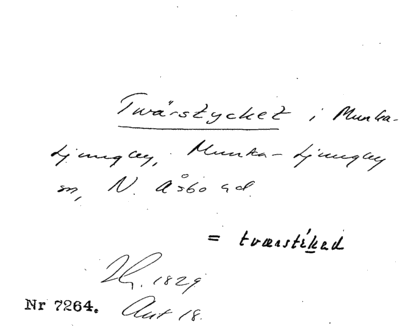 Tvärstycket i Munka-
Ljungby, Munka-Ljungby
sn, N. Åsbo hd.
= tværstikad
1829
Nr 7264. Akt 18.